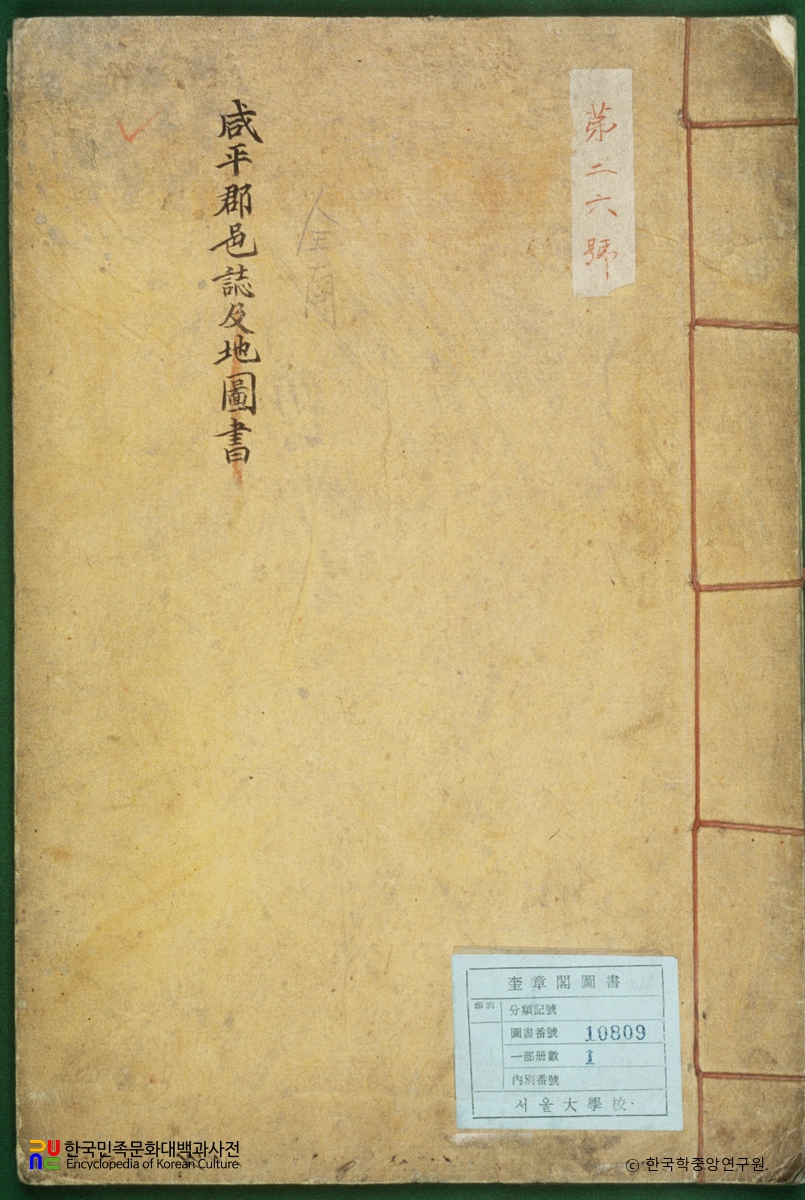 第二六號
全南
咸平郡邑誌及地圖書
奎章閣圖書
部別
分類記號
圖書番號 10809
一部册數 1
內別番號
서울大學校
한국민족문화대백과사전
Encyclopedia of Korean Culture
© 한국학중앙연구원.